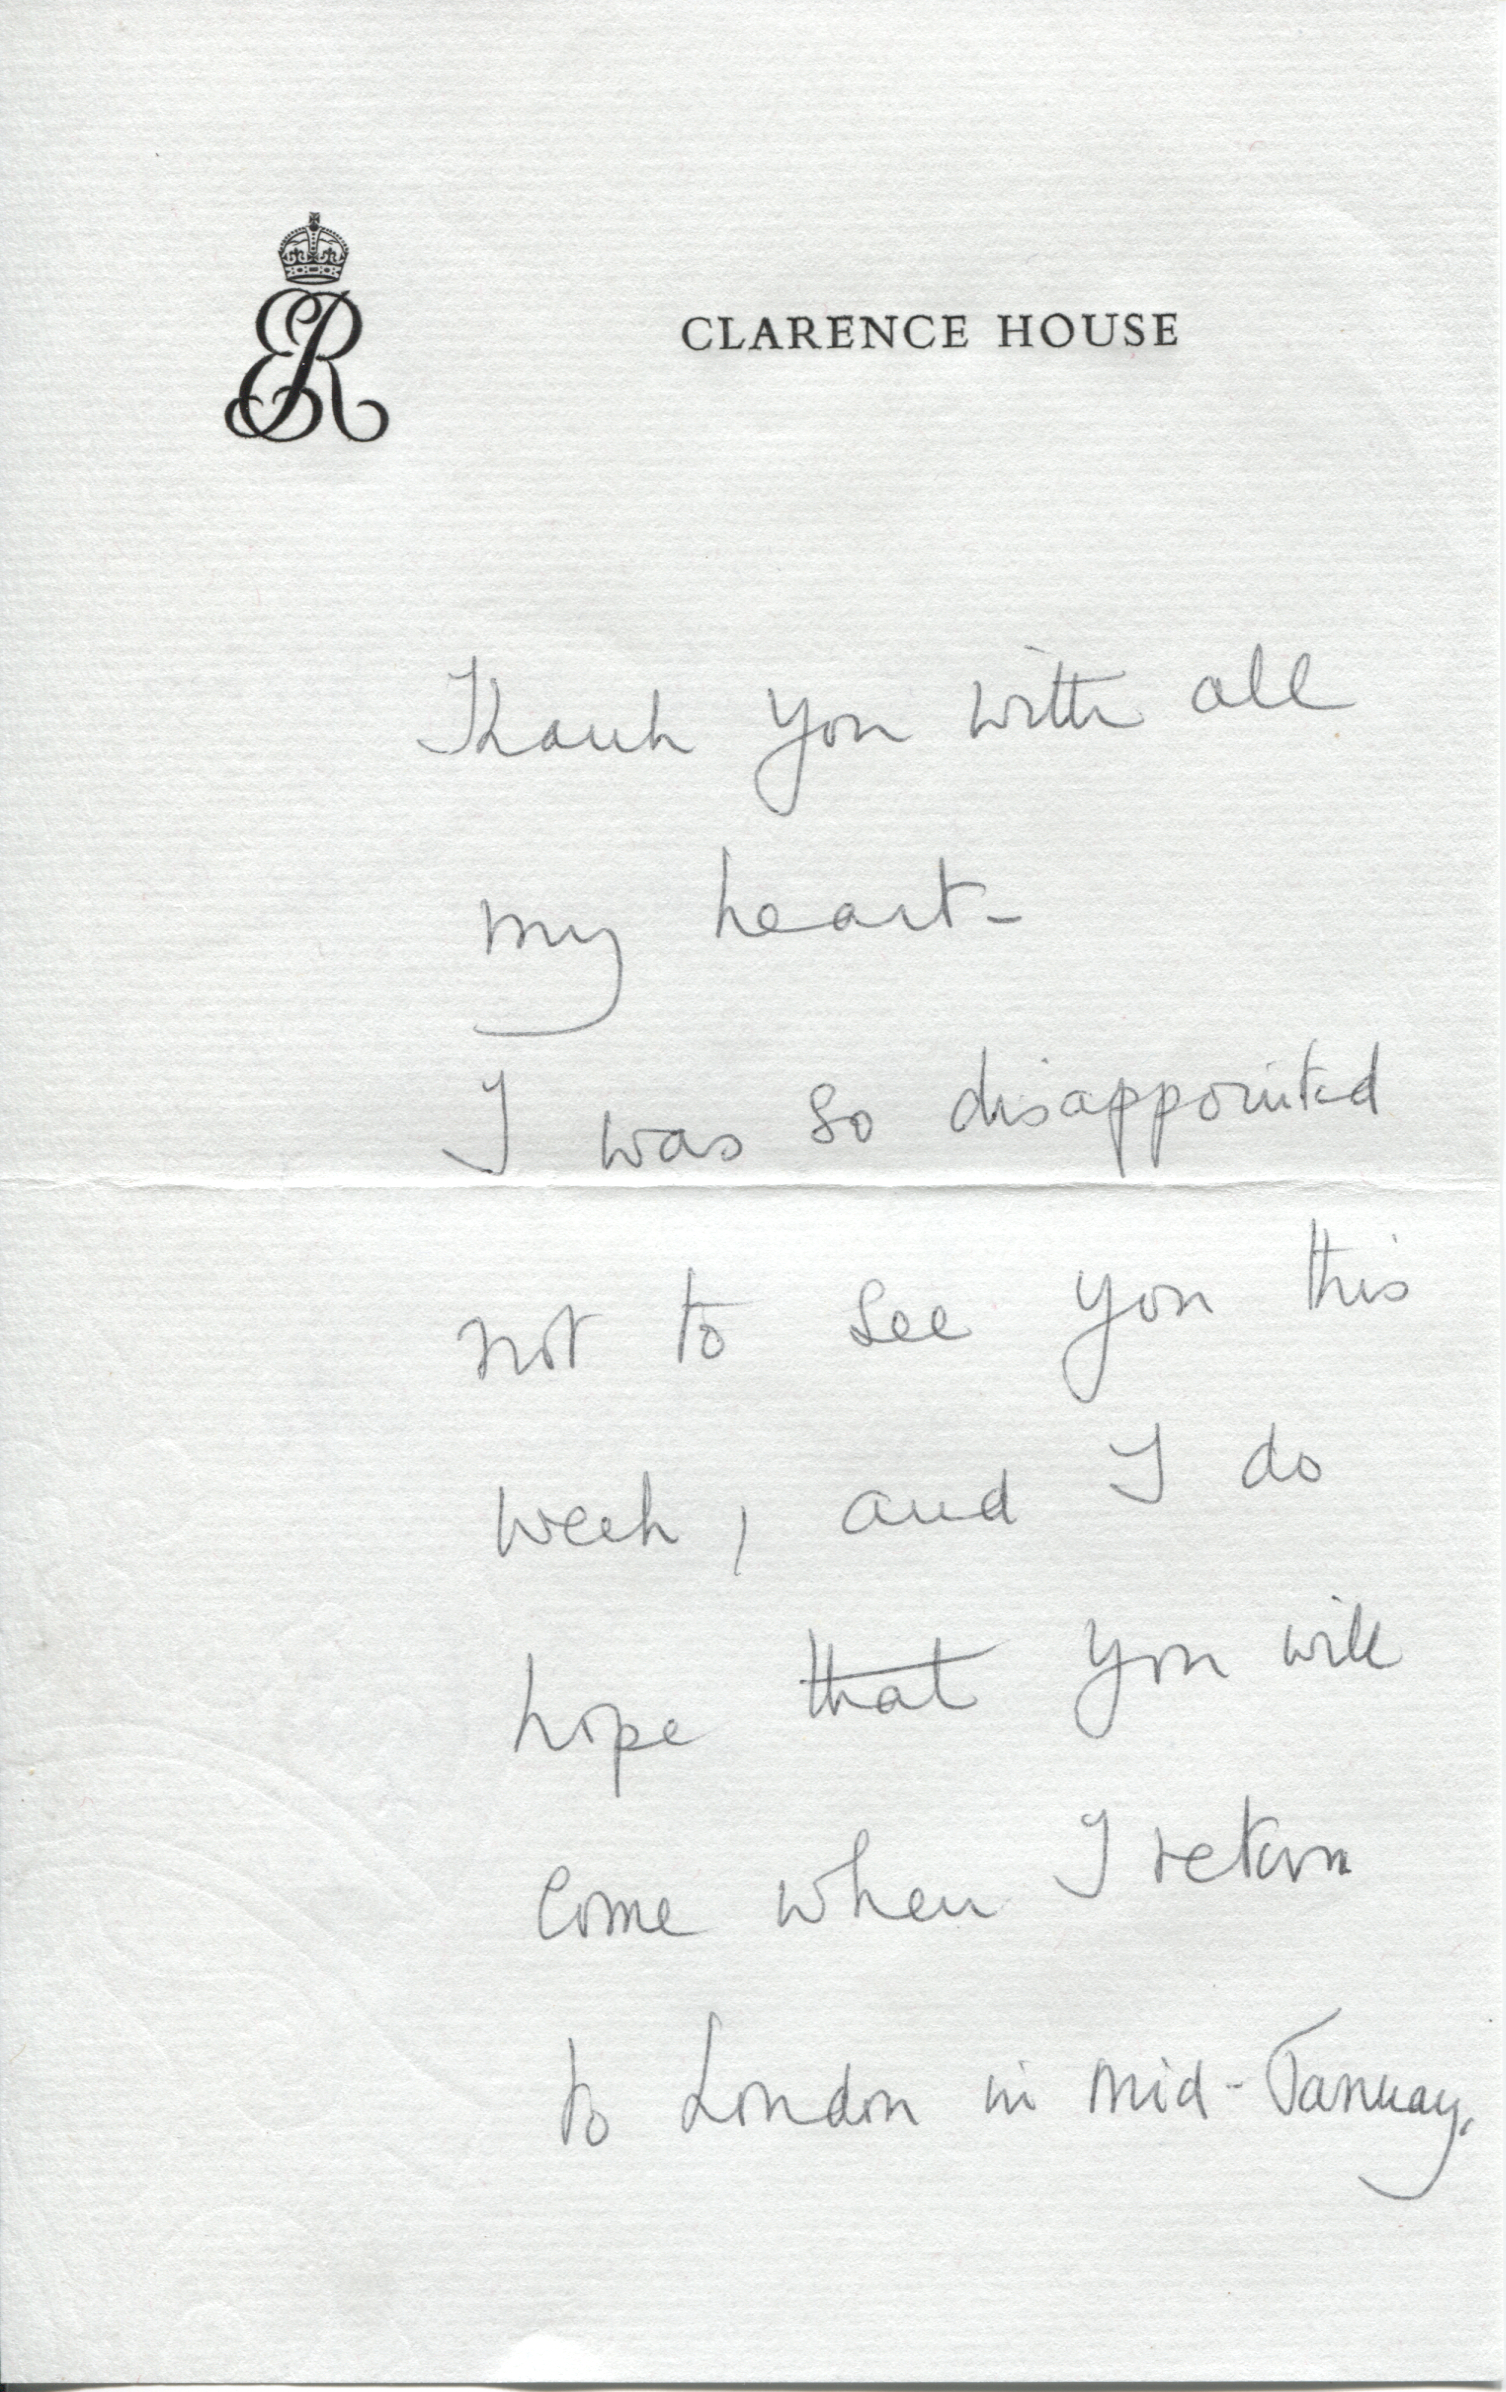 ER
CLARENCE HOUSE
Thank you with all
my heart-
I was so disappointed
not to see you this
week, and I do
hope that you will
come when I return
to London in mid-January.